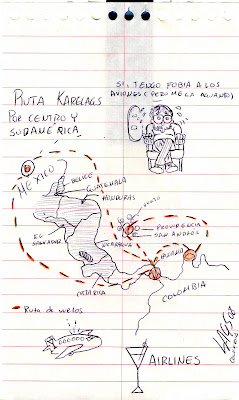 SI, TENGO FOBIA A LOS
AVIONES (PERO ME LA AGUANTO)
RUTA KARELAGS
POR CENTRO Y
SUDAMERICA
MÉXICO
BELICE
GUATEMALA
HONDURAS
EL
SALVADOR
NICARAGUA
PROVIDENCIA
SAN ANDRES
PANAMÁ
COSTA RICA
COLOMBIA
Ruta de vuelos
AIRLINES